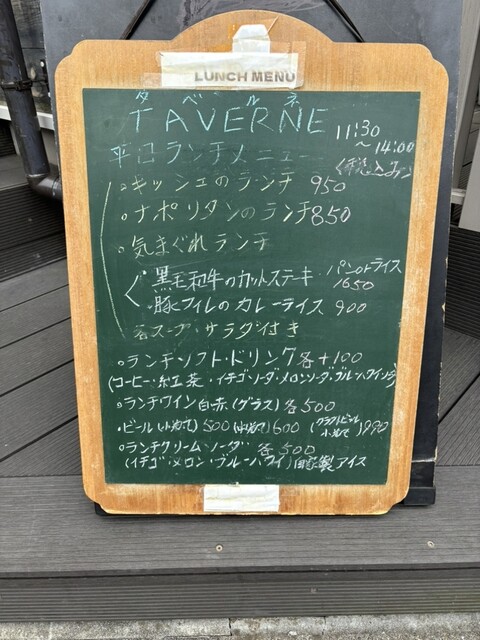 LUNCH MENU
タベルネ
TAVERNE
11:30
~14:00
平日ランチメニュー
。キッシュのランチ 950
。ナポリタンのランチ 850
。気まぐれランチ
黒毛和牛のカットステーキ・パンorライス
1650
豚フィレのカレーライス 900
各スープ・サラダ付き
。ランチソフト・ドリンク 各+100
(コーヒー・紅茶・イチゴソーダ・メロンソーダ・ブルーハワイソーダ)
。ランチワイン 白・赤 (グラス) 各500
・ビール 500 600 990
。ランチクリームソーダ 各500
(イチゴ・メロン・ブルーハワイ) 自家製アイス